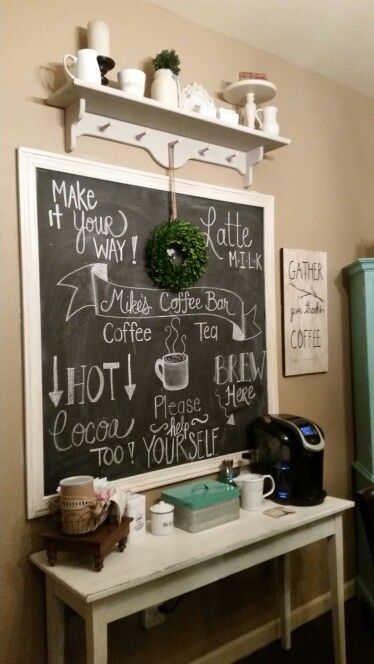 MAKE
it YOUR
WAY!
Latte
MILK
Mike's Coffee Bar
Coffee Tea
HOT
Cocoa
TOO!
BREW
Here
Please
help
YOURSELF
GATHER
give thanks
COFFEE